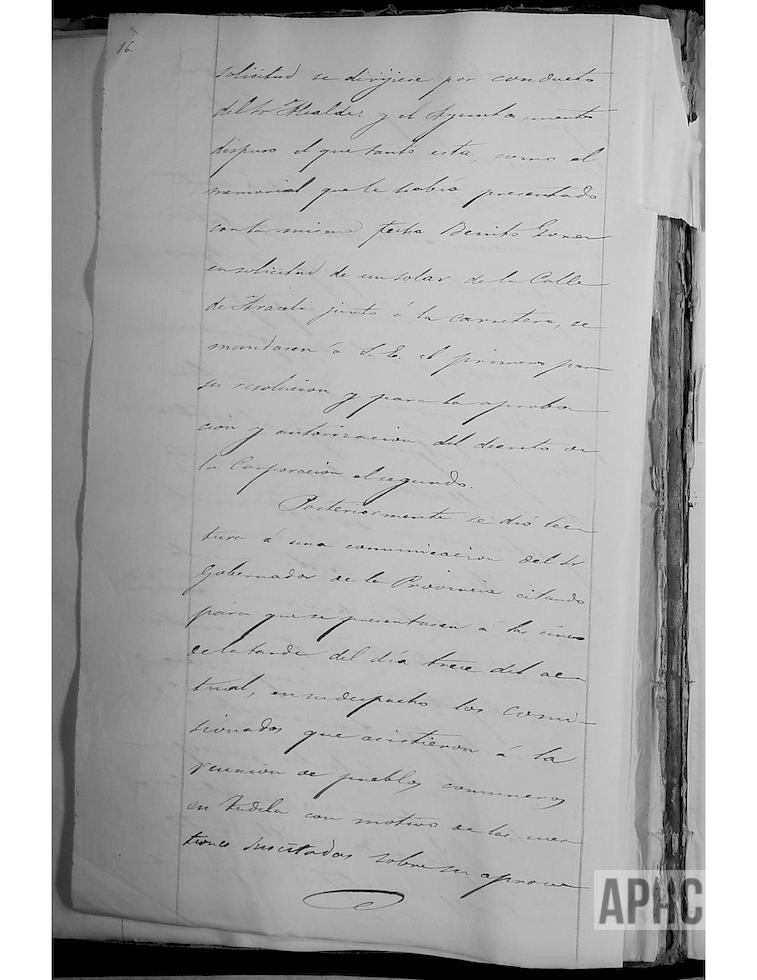 16.
solicitud se dirijiese por conducto
del Sr Alcalde: y el Ayuntamiento
dispuso el que tanto esta, como el
memorial que le habia presentado
con la misma fecha Benito
en solicitud de un solar de la Calle
de Araceli junto á la carretera, se
mandasen á S. E. el primero para
su resolucion y para la aproba
cion y autorizacion del decreto de
la Corporacion el segundo.
Posteriormente se dió lec
tura á una comunicacion del Sr
Gobernador de la Provincia citando
para que se presentasen á las cinco
de la tarde del dia trece del ac
tual, en su despacho los comi
sionados que asistieron á la
reunion de pueblos comuneros
en Tudela con motivo de las cues
tiones suscitadas sobre su aprove
APHC